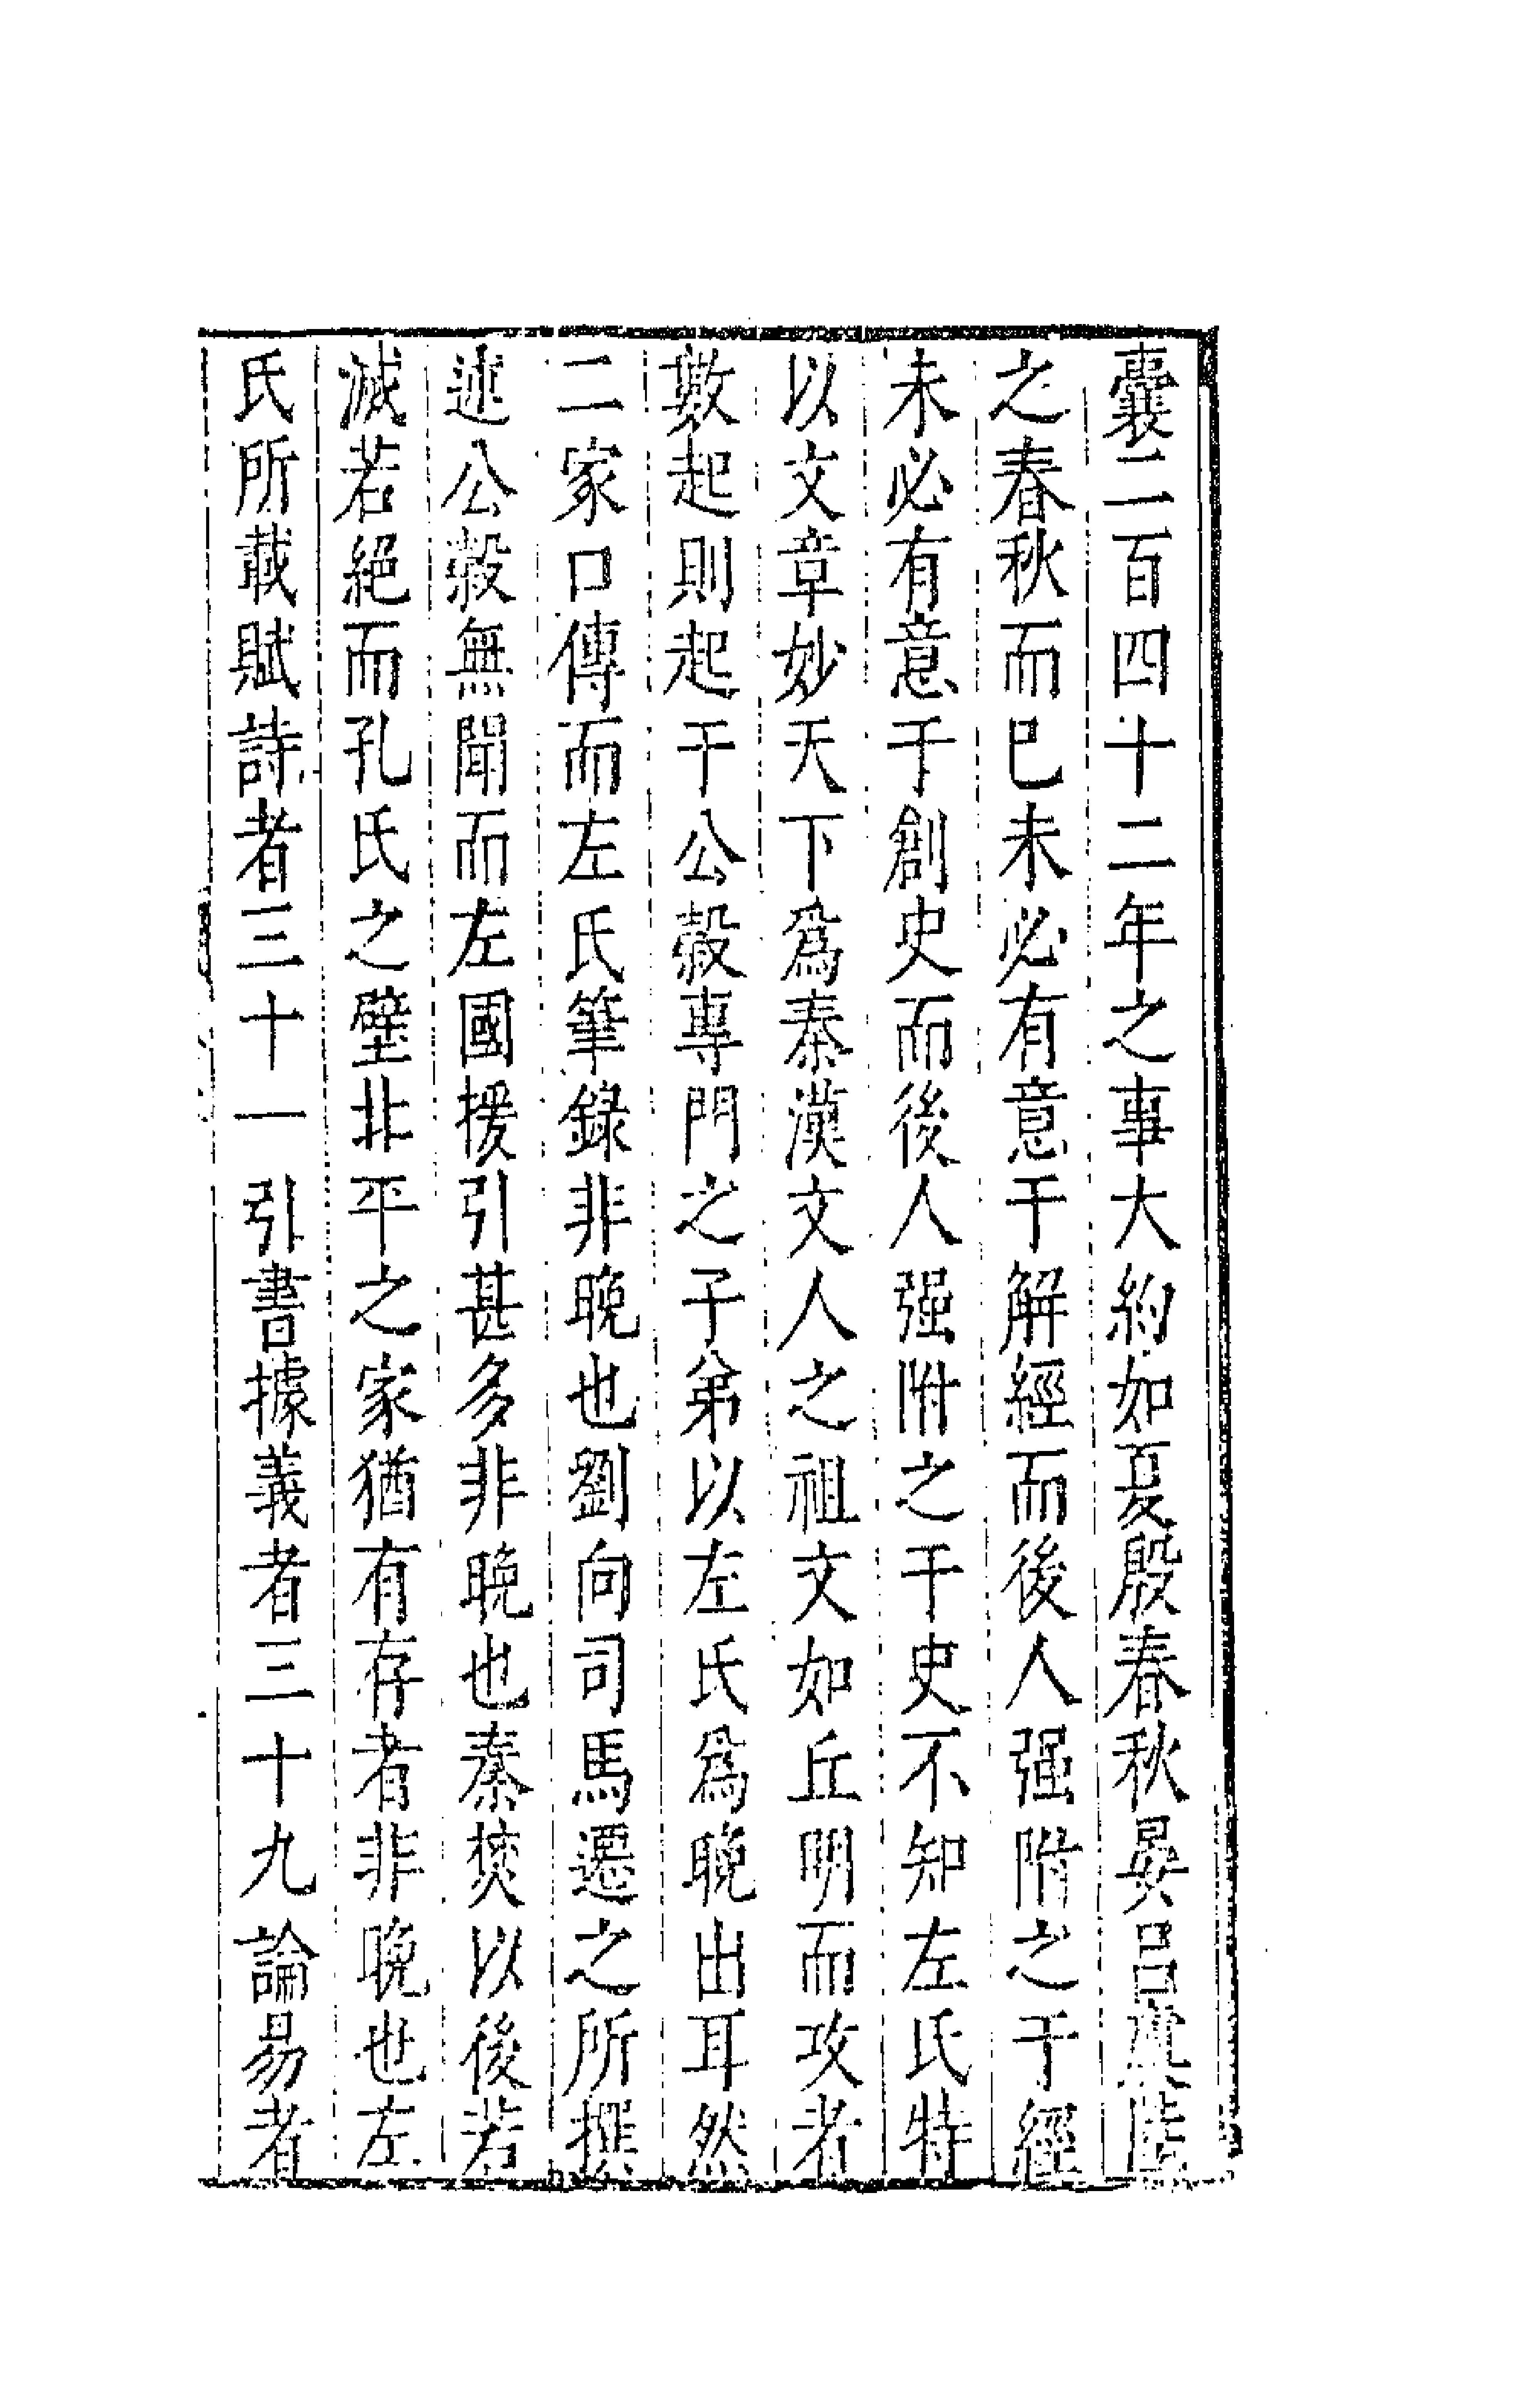 囊二百四十二年之事大約如夏殷春秋晏呂虞陸
之春秋而巳未必有意于解經而後人强附之于經
未必有意于創史而後人强附之于史不知左氏特
以文章妙天下爲秦漢文人之祖文如丘明而攻者
數起則起于公穀專門之子弟以左氏爲晚出耳然
二家口傳而左氏筆錄非晚也劉向司馬遷之所撰
述公穀無聞而左國援引甚多非晚也秦焚以後若
滅若絕而孔氏之壁北平之家猶有存者非晚也左
氏所載賦詩者三十一引書據義者三十九論易者